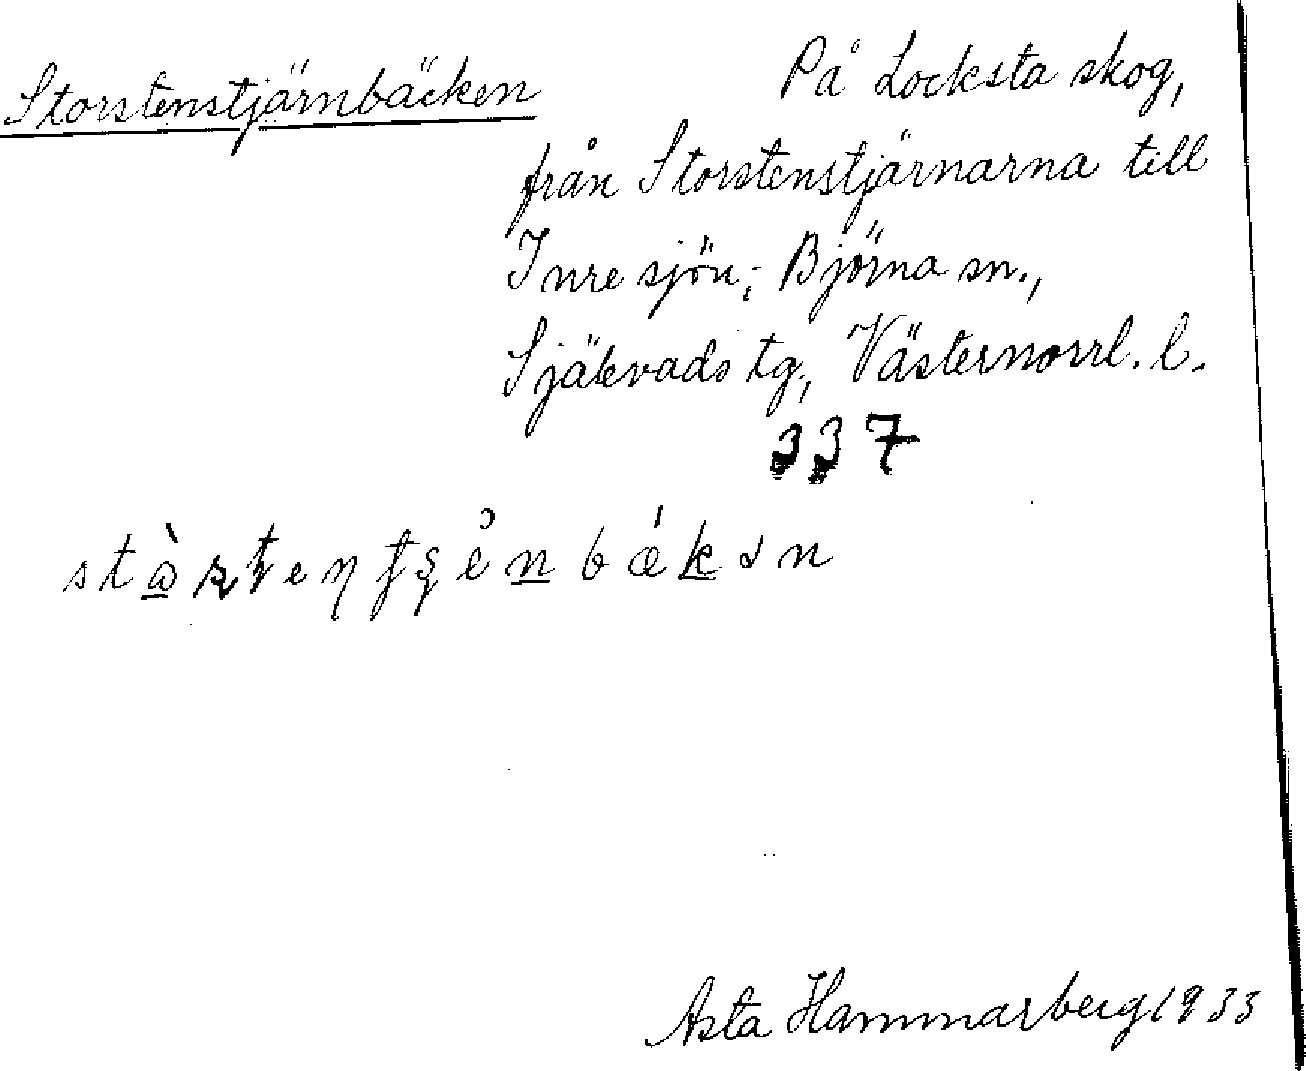 Storstenstjärnbäcken
På Locksta skog,
från Storstenstjärnarna till
Inre sjön; Björna sn.,
Själevads tg, Västernorrl. l.
337
Asta Hammarberg 1933